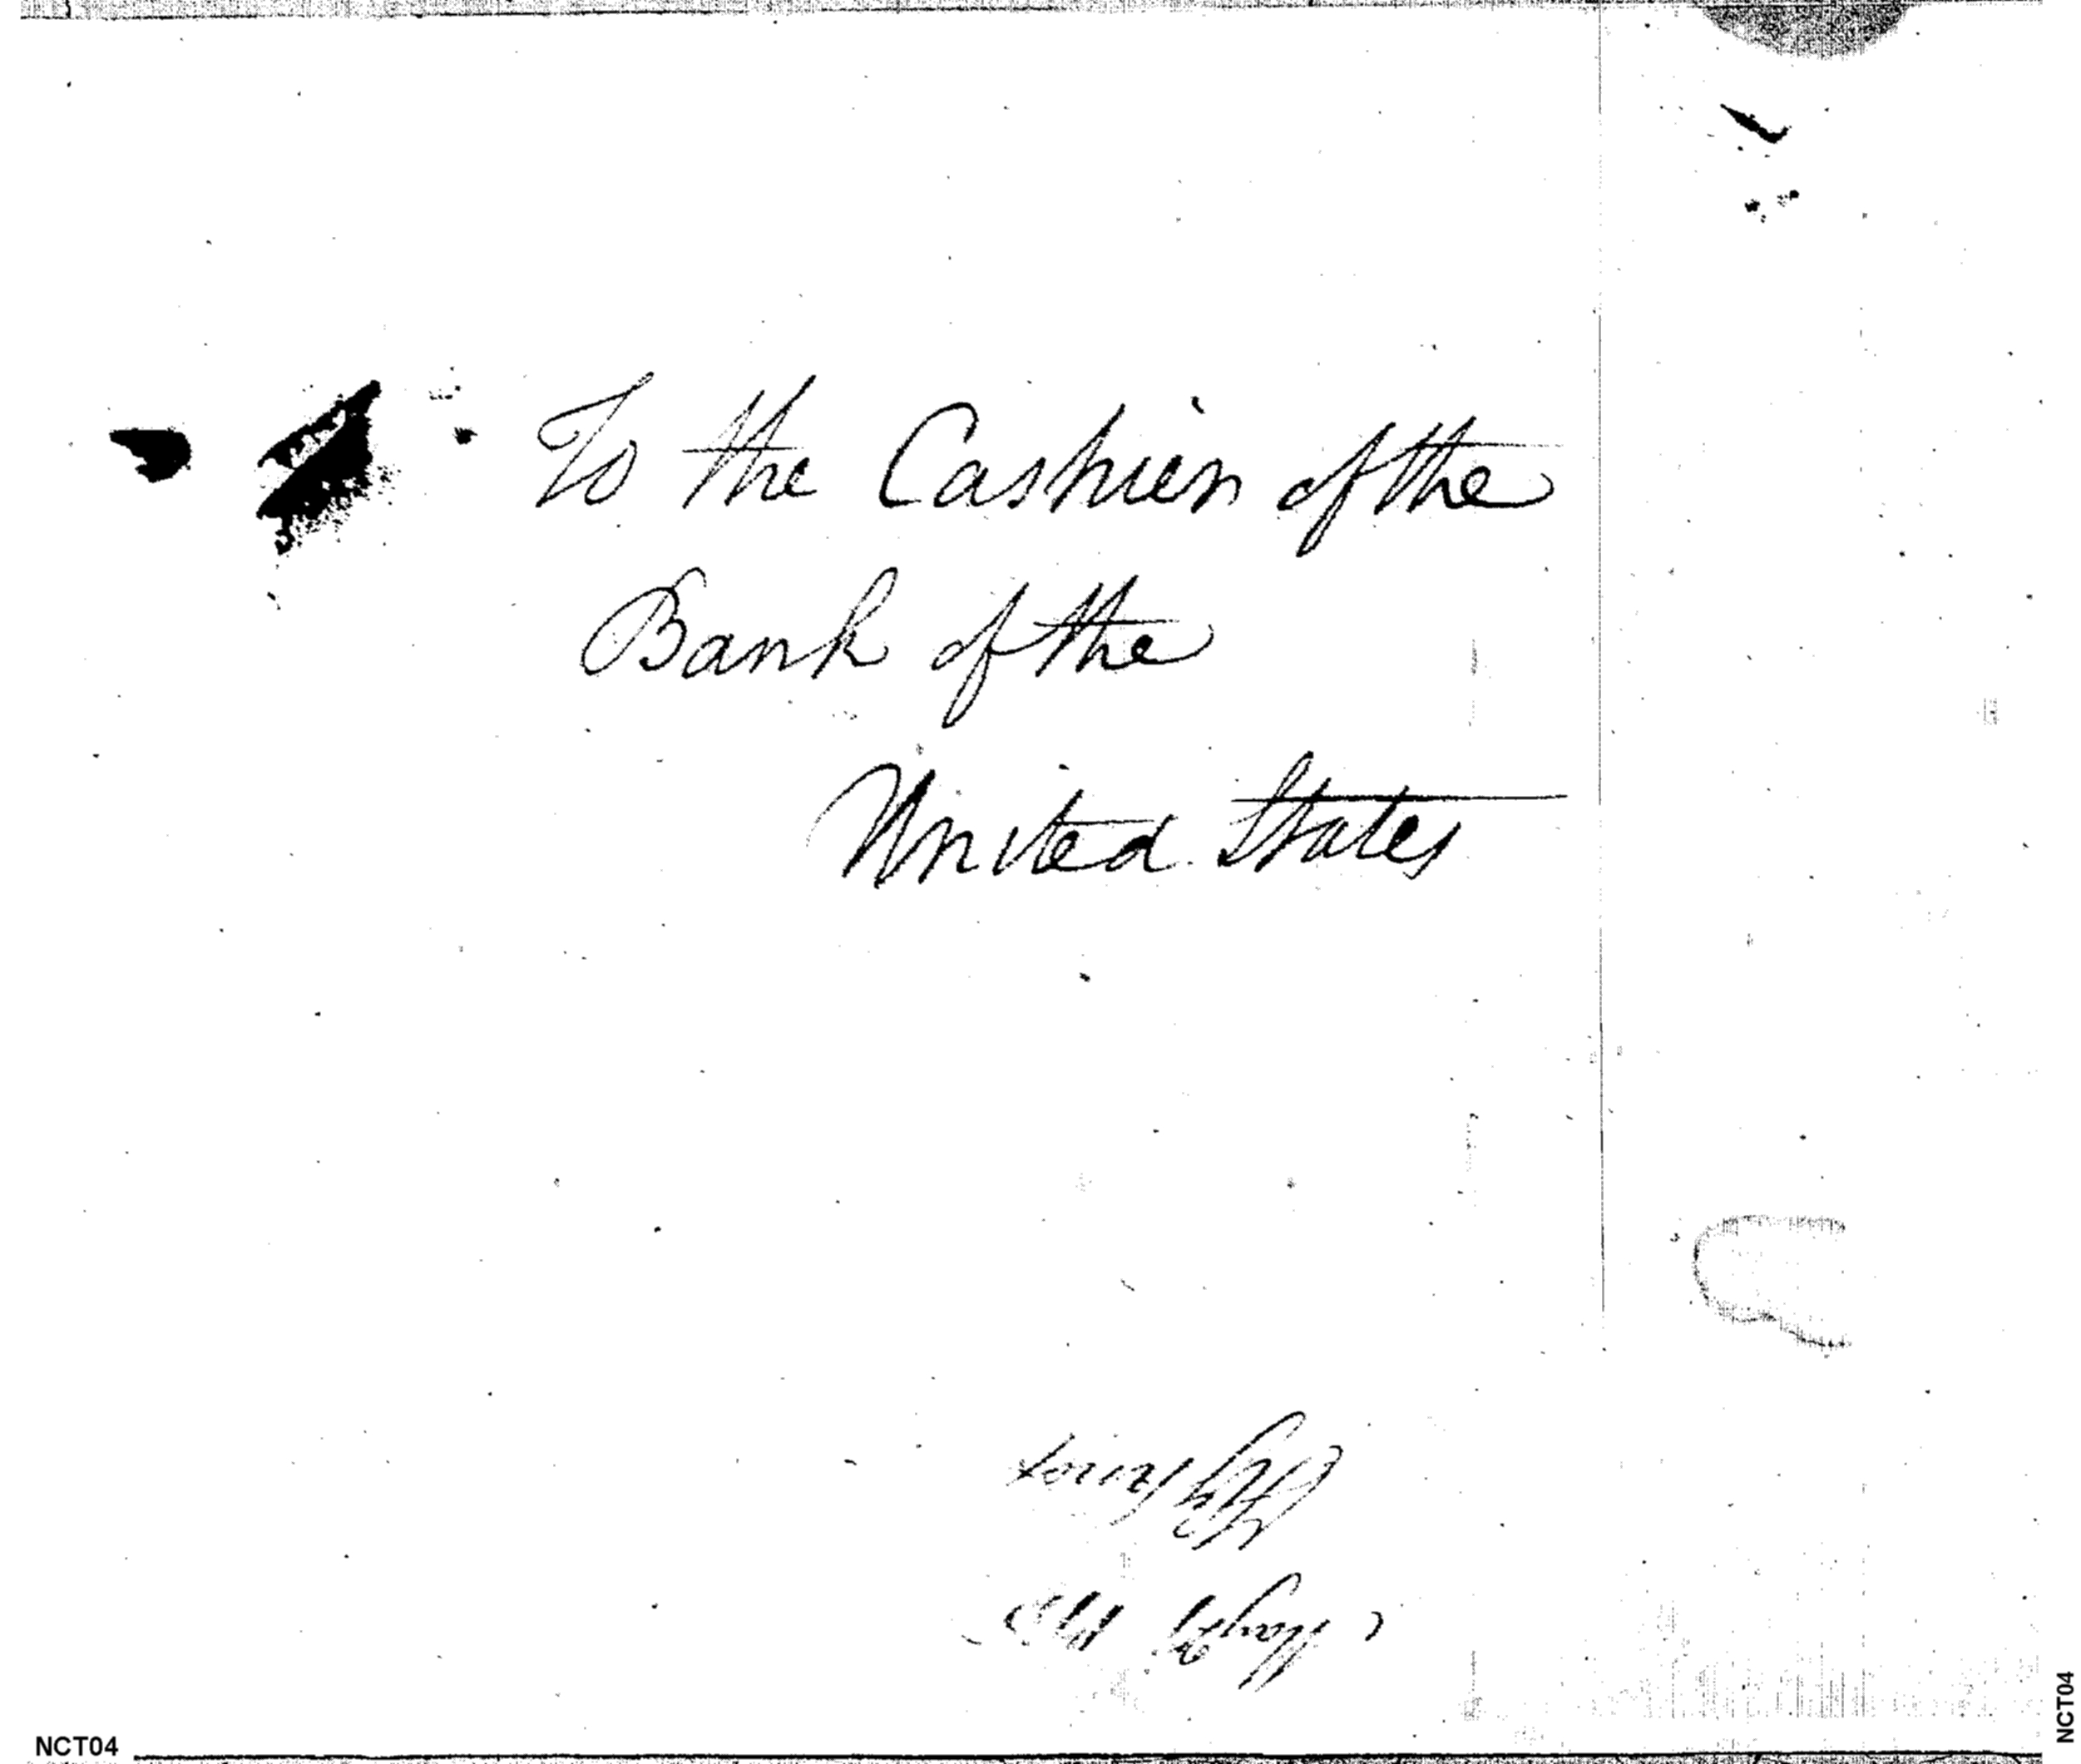 To the Cashier of the
Bank of the
United States
NCT04
NCT04